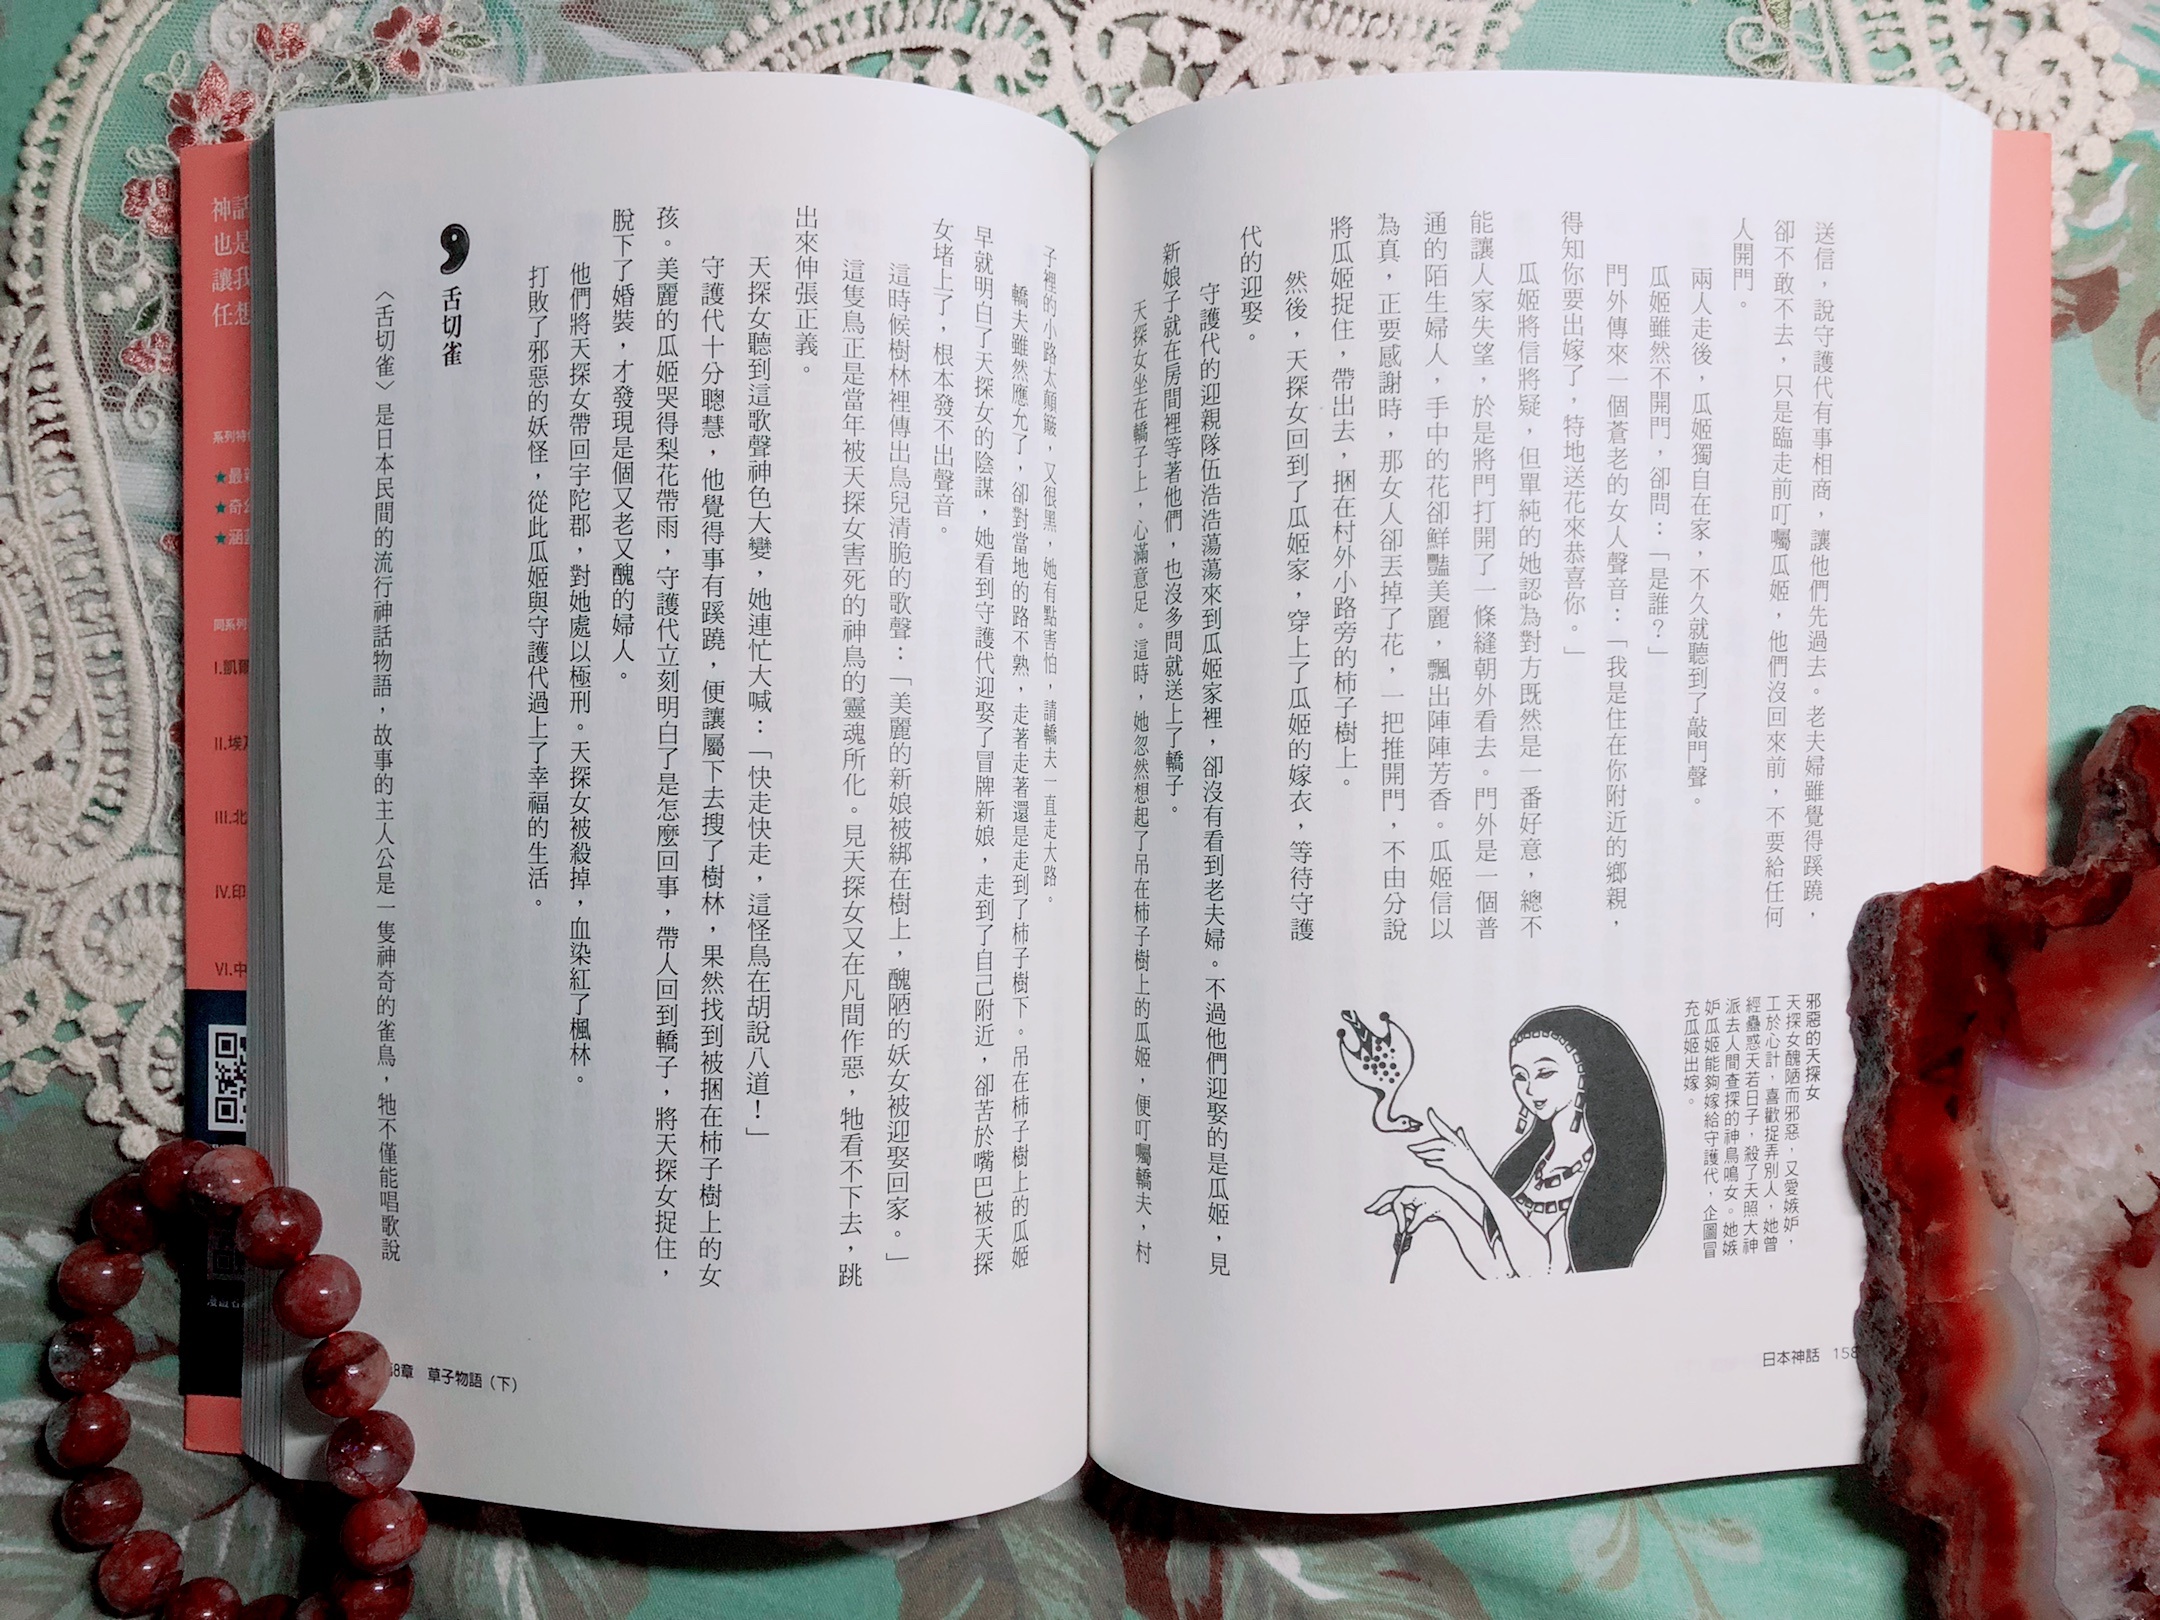 送信，說守護代有事相商，讓他們先過去。老夫婦雖覺得蹊蹺，
卻不敢不去，只是臨走前叮囑瓜姬，他們沒回來前，不要給任何
人開門。
兩人走後，瓜姬獨自在家，不久就聽到了敲門聲。
瓜姬雖然不開門，卻問：「是誰？」
門外傳來一個蒼老的女人聲音：「我是住在你附近的鄉親，
得知你要出嫁了，特地送花來恭喜你。」
瓜姬將信將疑，但單純的她認為對方既然是一番好意，總不
能讓人家失望，於是將門打開了一條縫朝外看去。門外是一個普
通的陌生婦人，手中的花卻鮮豔美麗，飄出陣陣芳香。瓜姬信以
為真，正要感謝時，那女人卻丟掉了花，一把推開門，不由分說
將瓜姬捉住，帶出去，捆在村外小路旁的柿子樹上。
然後，天探女回到了瓜姬家，穿上了瓜姬的嫁衣，等待守護
代的迎娶。
守護代的迎親隊伍浩浩蕩蕩來到瓜姬家裡，卻沒有看到老夫婦。不過他們迎娶的是瓜姬，見
新娘子就在房間裡等著他們，也沒多問就送上了轎子。
天探女坐在轎子上，心滿意足。這時，她忽然想起了吊在柿子樹上的瓜姬，便叮囑轎夫，村
邪惡的天探女
天探女醜陋而邪惡，又愛嫉妒，
工於心計，喜歡捉弄別人，她曾
經蠱惑天若日子，殺了天照大神
派去人間查探的神鳥鳴女。她嫉
妒瓜姬能夠嫁給守護代，企圖冒
充瓜姬出嫁。
日本神話 158
子裡的小路太顛簸，又很黑，她有點害怕，請轎夫一直走大路。
轎夫雖然應允了，卻對當地的路不熟，走著走著還是走到了柿子樹下。吊在柿子樹上的瓜姬
早就明白了天探女的陰謀，她看到守護代迎娶了冒牌新娘，走到了自己附近，卻苦於嘴巴被天探
女堵上了，根本發不出聲音。
這時候樹林裡傳出鳥兒清脆的歌聲：「美麗的新娘被綁在樹上，醜陋的妖女被迎娶回家。」
這隻鳥正是當年被天探女害死的神鳥的靈魂所化。見天探女又在凡間作惡，牠看不下去，跳
出來伸張正義。
天探女聽到這歌聲神色大變，她連忙大喊：「快走快走，這怪鳥在胡說八道！」
守護代十分聰慧，他覺得事有蹊蹺，便讓屬下去搜了樹林，果然找到被捆在柿子樹上的女
孩。美麗的瓜姬哭得梨花帶雨，守護代立刻明白了是怎麼回事，帶人回到轎子，將天探女捉住，
脫下了婚裝，才發現是個又老又醜的婦人。
他們將天探女帶回宇陀郡，對她處以極刑。天探女被殺掉，血染紅了楓林。
打敗了邪惡的妖怪，從此瓜姬與守護代過上了幸福的生活。
舌切雀
〈舌切雀〉是日本民間的流行神話物語，故事的主人公是一隻神奇的雀鳥，牠不僅能唱歌說
8章 草子物語（下）
神話
也是
讓我
任想
★最
★奇幻
★涵
同系列
I.凱爾
II.埃及
III.北
IV.印
VI.中